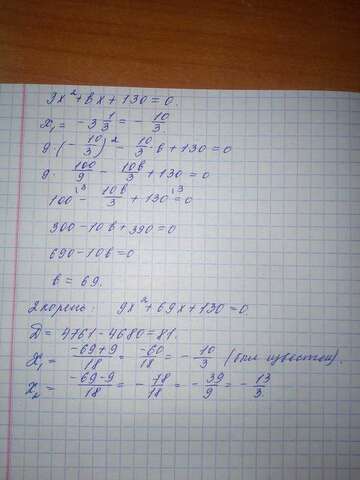 9x² + bx + 130 = 0.
x₁ = -3 1/3 = - 10/3.
9·(-10/3)² - 10/3·b + 130 = 0
9·100/9 - 10b/3 + 130 = 0
100 ·3 - 10b/3 + 130 ·3 = 0
300 - 10b + 390 = 0
690 - 10b = 0
b = 69.
2 корень: 9x² + 69x + 130 = 0
D = 4761 - 4680 = 81.
x₁ = (-69+9)/18 = -60/18 = - 10/3 (был известен).
x₂ = (-69-9)/18 = - 78/18 = - 39/9 = - 13/3.